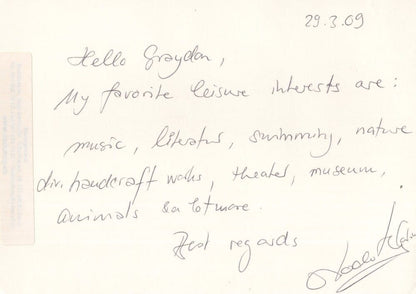 29.3.09
Hello Graydon,
My favorite leisure interests are:
music, literatur, swimming, nature
div. handcraft works, theater, museum,
animals & a lot more.
Best regards